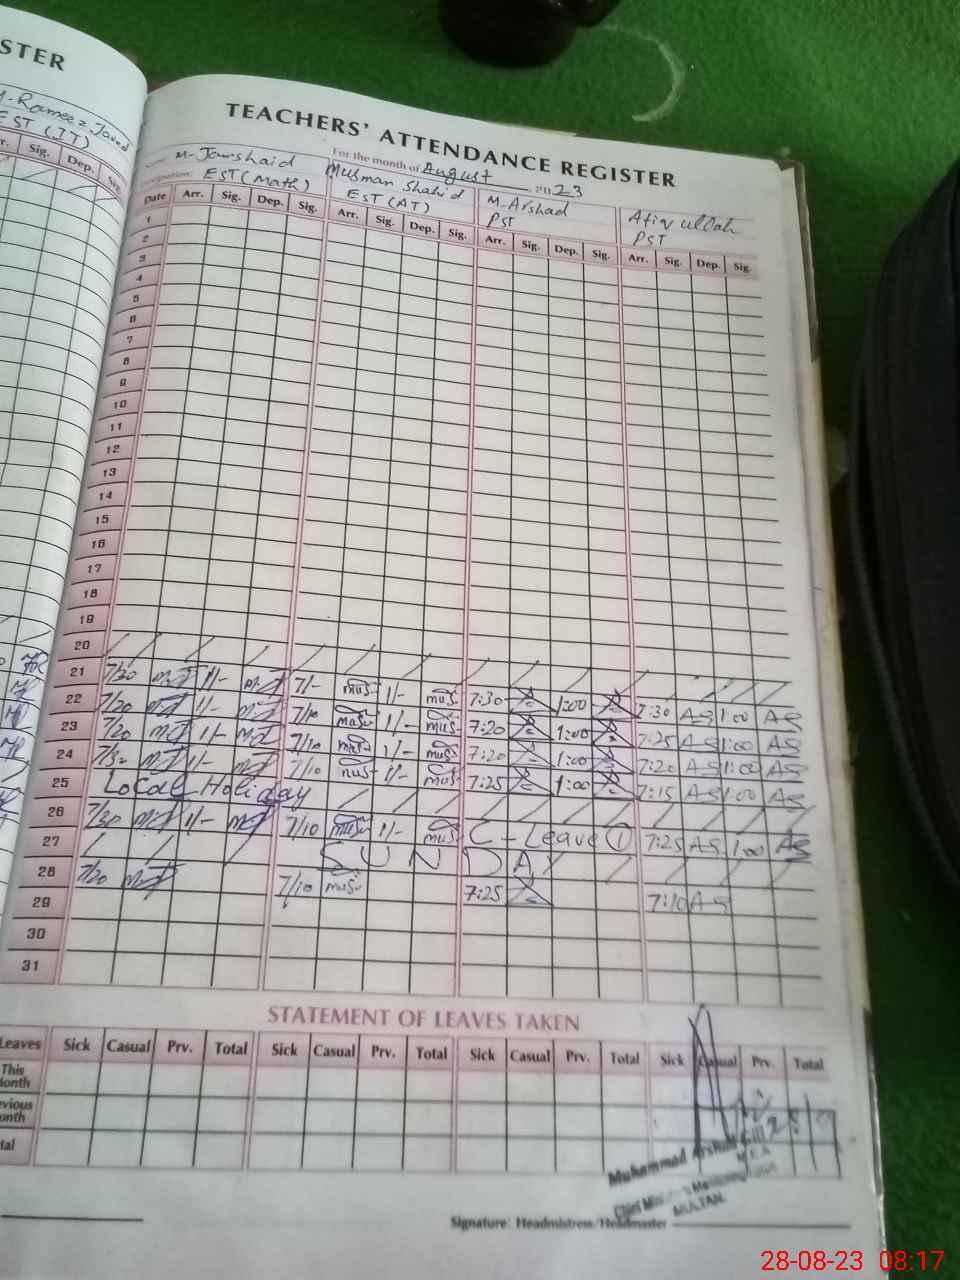 STER
M-Rameez Javed
EST (IT)
Sig. Dep. Sig.
TEACHERS' ATTENDANCE REGISTER
For the month of August 2023
M-Jamshaid
EST (Math)
Musman Shahid
EST (AT)
M-Arshad
PST
Atiq ullah
PST
Date Arr. Sig. Dep. Sig. Arr. Sig. Dep. Sig. Arr. Sig. Dep. Sig. Arr. Sig. Dep. Sig.
1
2
3
4
5
6
7
8
9
10
11
12
13
14
15
16
17
18
19
20
21 7/20 1/- 7/- mus 1/- mus 7:30 1:00 7:30 AS 1:00 AS
22 7/20 1/- 7/10 mus 1/- mus 7:20 1:00 7:25 AS 1:00 AS
23 7/20 1/- 7/10 mus 1/- mus 7:20 1:00 7:20 AS 1:00 AS
24 1/- 7/10 mus 1/- mus 7:25 1:00 7:15 AS 1:00 AS
25 Local Holiday
26 7/20 1/- 7/10 mus 1/- mus C-Leave 1 7:25 AS 1:00 AS
27 SUNDAY
28 7/20 7/10 mus 7:25 7:10 AS
29
30
31
STATEMENT OF LEAVES TAKEN
Leaves Sick Casual Prv. Total Sick Casual Prv. Total Sick Casual Prv. Total Sick Casual Prv. Total
This
Month
Previous
Month
Total
Muhammad Arshad Gill
M.E.A
MULTAN
Signature: Headmistress/Headmaster
28-08-23 08:17